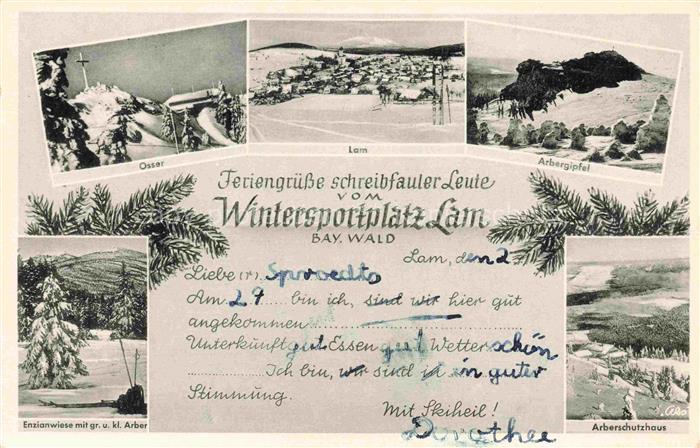 Osser
Lam
Arbergipfel
Feriengrüße schreibfauler Leute
VOM
Wintersportplatz Lam
BAY. WALD
Lam, den 2
Liebe (r)
Am 29 bin ich, sind wir hier gut
angekommen
Unterkunft gut Essen gut Wetter schön
Ich bin, wir sind in guter
Stimmung.
Mit Skiheil!
Dorothee
Enzianwiese mit gr. u. kl. Arber
Arberschutzhaus